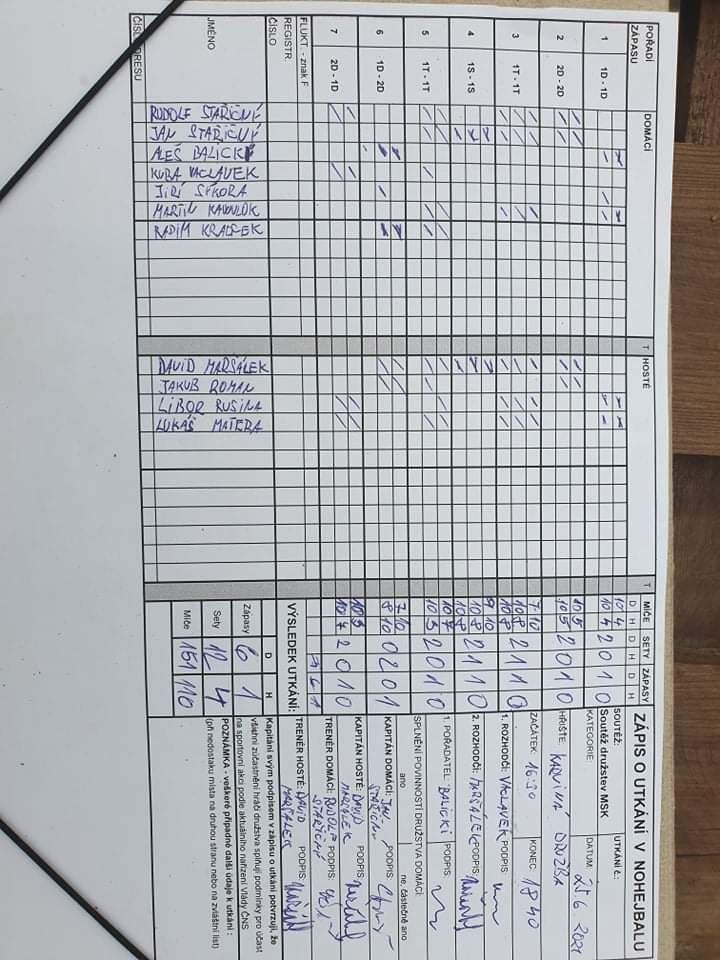 ZÁPIS O UTKÁNÍ V NOHEJBALU
SOUTĚŽ: UTKÁNÍ č.:
Soutěž družstev MSK
KATEGORIE: DATUM: 25 6 2021
HŘIŠTĚ: KARVINÁ DRUŽBA
ZAČÁTEK: 16:30 KONEC: 18:40
1. ROZHODČÍ: VACLAVEK PODPIS:
2. ROZHODČÍ: MARŠÁLEK PODPIS:
1. POŘADATEL: BALICKI PODPIS:
SPLNĚNÍ POVINNOSTÍ DRUŽSTVA DOMÁCÍ:
ano ne, částečně ano
KAPITÁN DOMÁCÍ: JAN STAŘIČNÝ PODPIS:
KAPITÁN HOSTÉ: DAVID MARŠÁLEK PODPIS:
TRENÉR DOMÁCÍ: RUDOLF STAŘIČNÝ PODPIS:
TRENÉR HOSTÉ: DAVID MARŠÁLEK PODPIS:
Kapitáni svým podpisem v zápisu o utkání potvrzují, že
všichni zúčastnění hráči družstva splňují podmínky pro účast
na sportovní akci podle aktuálního nařízení Vlády ČNS
POZNÁMKA - veškeré případné další údaje k utkání :
(při nedostatku místa na druhou stranu nebo na zvláštní list)
POŘADÍ ZÁPASU
1 2 3 4 5 6 7
1D - 1D 2D - 2D 1T - 1T 1S - 1S 1T - 1T 1D - 2D 2D - 1D
FLUKT - znak F
REGISTR. ČÍSLO
JMÉNO
ČÍSLO DRESU
DOMÁCÍ
T
RUDOLF STAŘIČNÝ
JAN STAŘIČNÝ
ALEŠ BALICKI
KUBA VACLAVEK
JIŘÍ SÝKORA
MARTIN KAVULOK
RADIM KRALREK
HOSTÉ
T
DAVID MARŠÁLEK
JAKUB ROMAN
LIBOR RUSINA
LUKÁŠ MATERA
MÍČE SETY ZÁPASY
D H D H D H
10 4
10 4 2 0 1 0
10 5
10 5 2 0 1 0
7 10
10 8
10 8 2 1 1 0
9 10
10 8
10 8 2 1 1 0
10 7
10 5 2 0 1 0
7 10
8 10 0 2 0 1
10 5
10 7 2 0 1 0
VÝSLEDEK UTKÁNÍ:
D H
Zápasy 6 1
Sety 12 4
Míče 151 110